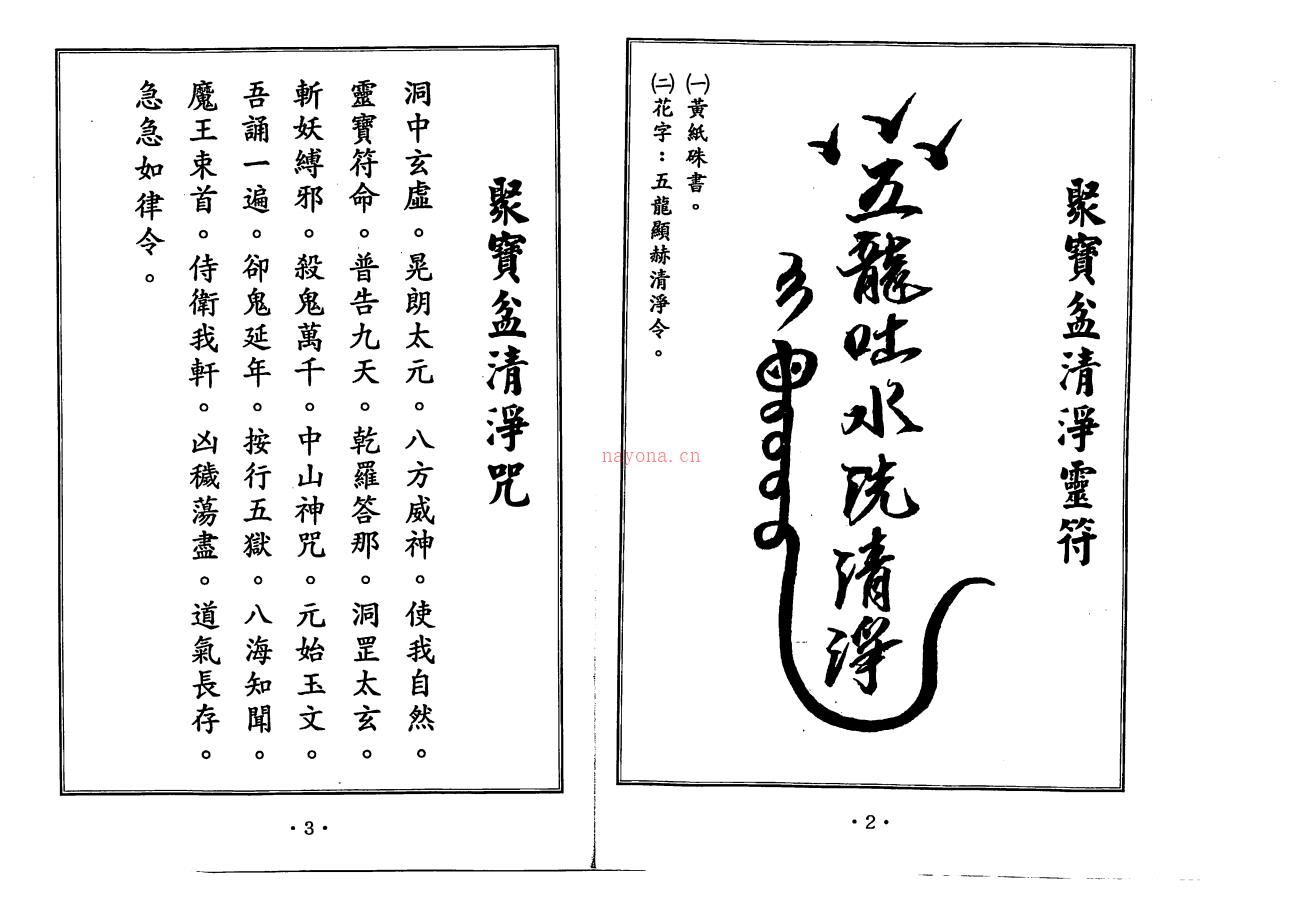 聚寶盆清淨靈符
五龍吐水洗清淨
㈠黃紙硃書。
㈡花字：五龍顯赫清淨令。
·2·
聚寶盆清淨咒
洞中玄虛。晃朗太元。八方威神。使我自然。
靈寶符命。普告九天。乾羅答那。洞罡太玄。
斬妖縛邪。殺鬼萬千。中山神咒。元始玉文。
吾誦一遍。卻鬼延年。按行五獄。八海知聞。
魔王束首。侍衛我軒。凶穢蕩盡。道氣長存。
急急如律令。
·3·
nayona.cn